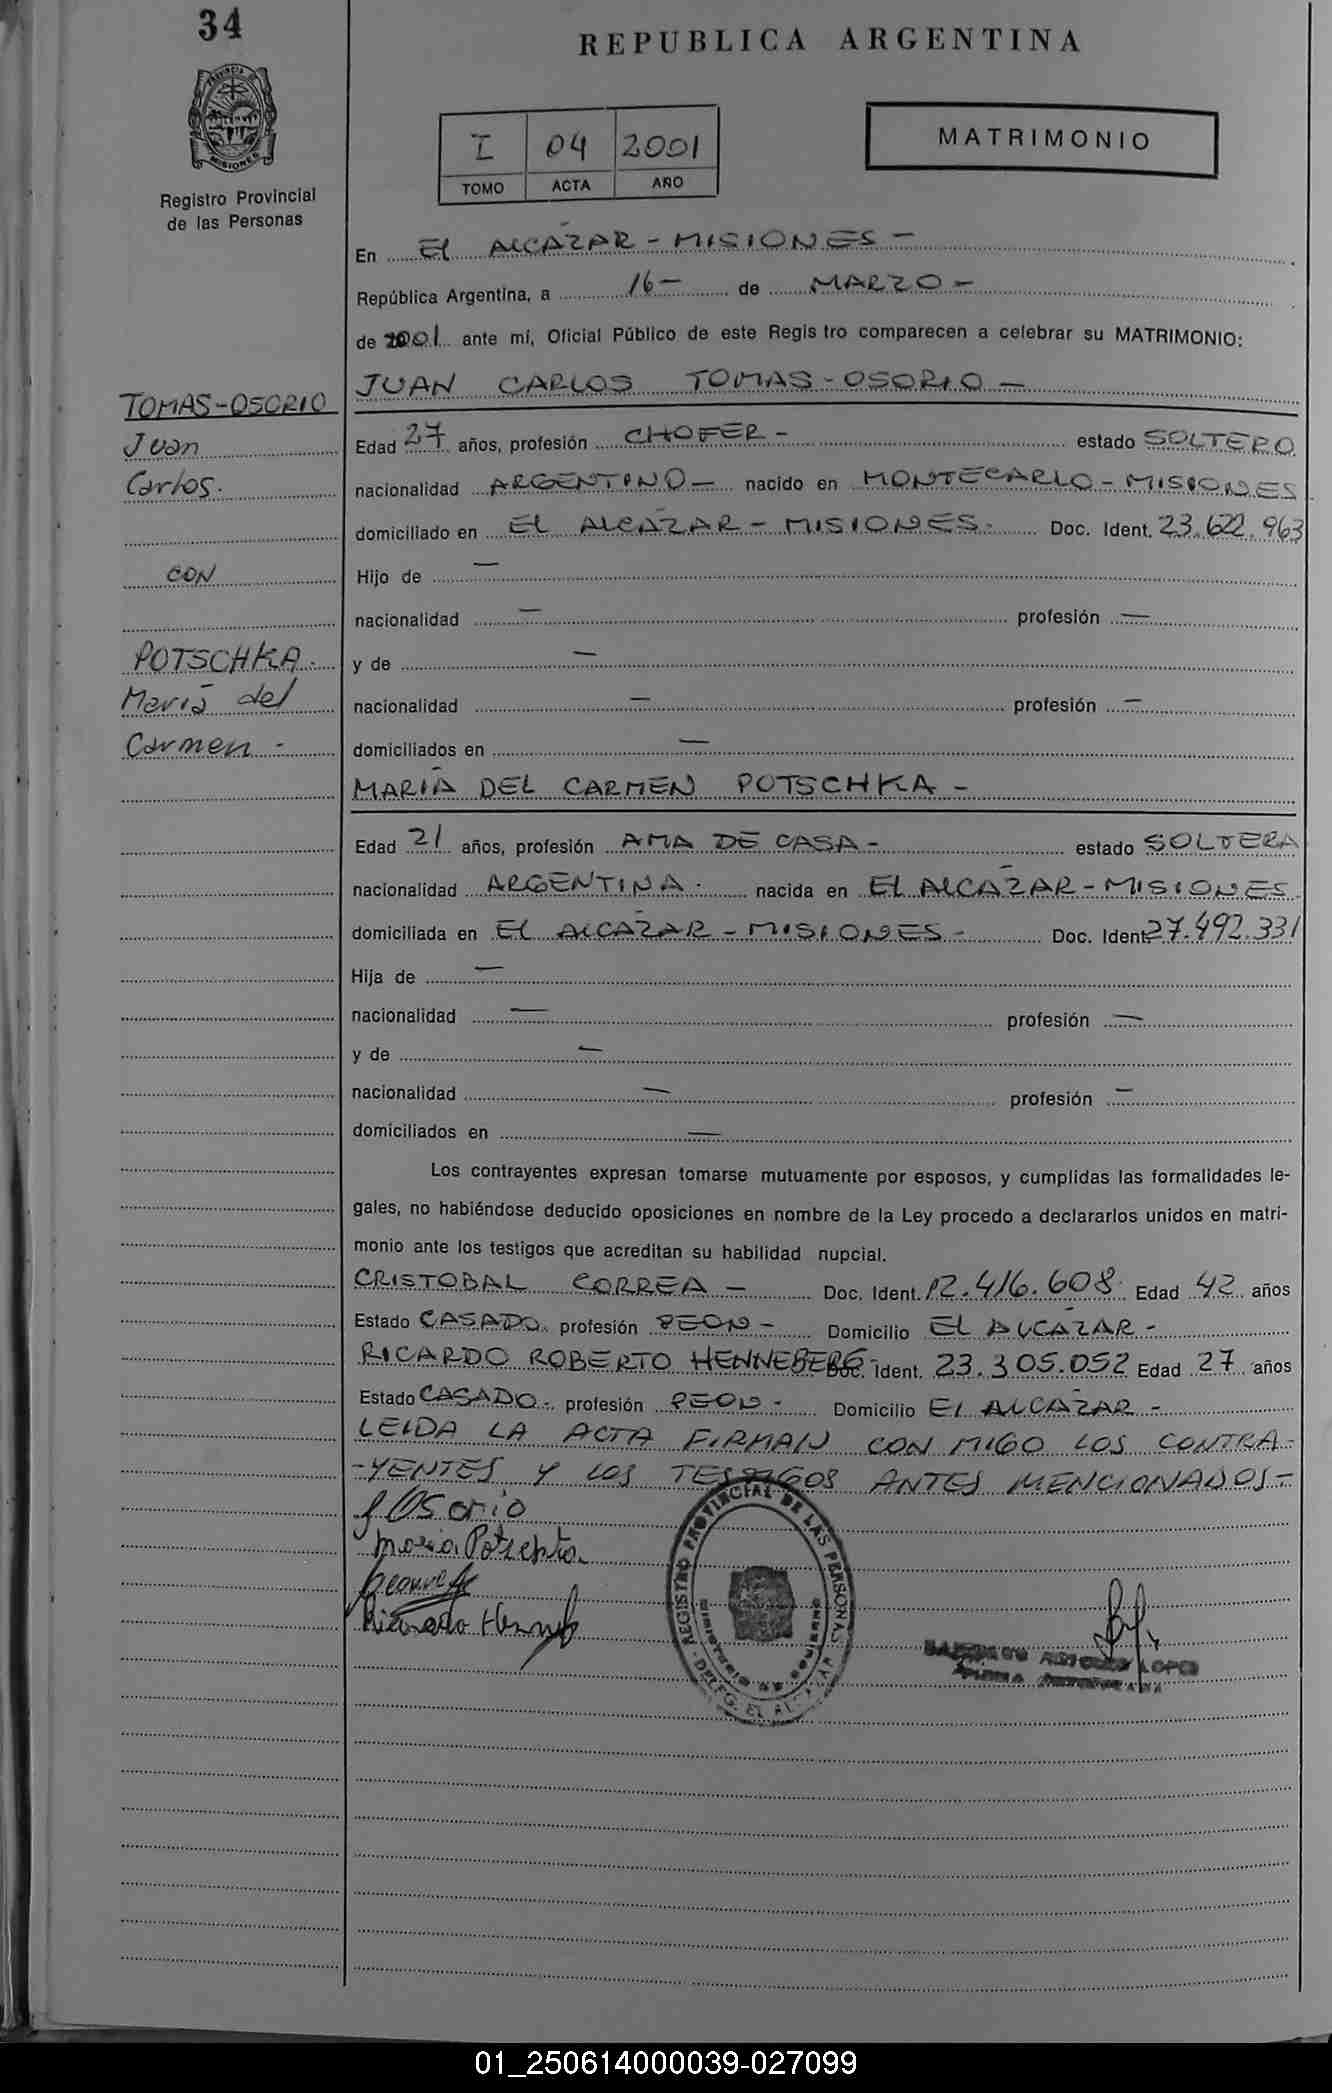 34
REPUBLICA ARGENTINA
PROVINCIA DE
MISIONES
Registro Provincial
de las Personas
I 04 2001
TOMO ACTA AÑO
MATRIMONIO
En EL ALCÁZAR - MISIONES -
República Argentina, a 16- de MARZO -
de 2001 ante mí, Oficial Público de este Regis tro comparecen a celebrar su MATRIMONIO:
JUAN CARLOS TOMAS-OSORIO -
TOMAS-OSORIO
Juan
Carlos.
CON
POTSCHKA.
María del
Carmen -
Edad 27 años, profesión CHOFER - estado SOLTERO
nacionalidad ARGENTINO - nacido en MONTECARLO - MISIONES
domiciliado en EL ALCÁZAR - MISIONES. Doc. Ident. 23.622.963
Hijo de —
nacionalidad — profesión —
y de —
nacionalidad — profesión —
domiciliados en —
MARÍA DEL CARMEN POTSCHKA -
Edad 21 años, profesión AMA DE CASA - estado SOLTERA
nacionalidad ARGENTINA. nacida en EL ALCÁZAR - MISIONES.
domiciliada en EL ALCÁZAR - MISIONES - Doc. Ident. 27.492.331
Hija de —
nacionalidad — profesión —
y de —
nacionalidad — profesión —
domiciliados en —
Los contrayentes expresan tomarse mutuamente por esposos, y cumplidas las formalidades le-
gales, no habiéndose deducido oposiciones en nombre de la Ley procedo a declararlos unidos en matri-
monio ante los testigos que acreditan su habilidad nupcial.
CRISTOBAL CORREA - Doc. Ident. 12.416.608. Edad 42 años
Estado CASADO. profesión PEON - Domicilio EL ALCÁZAR -
RICARDO ROBERTO HENNEBERG - Doc. Ident. 23.305.052 Edad 27 años
Estado CASADO. profesión PEON - Domicilio EL ALCÁZAR -
LEIDA LA ACTA FIRMAN CON MIGO LOS CONTRA-
-YENTES Y LOS TESTIGOS ANTES MENCIONADOS -
Osorio
Maria Potschka
Ricardo Henneb
REGISTRO PROVINCIAL DE LAS PERSONAS
MINISTERIO DE GOBIERNO
DELEG. EL ALCAZAR
LOPEZ
01_250614000039-027099